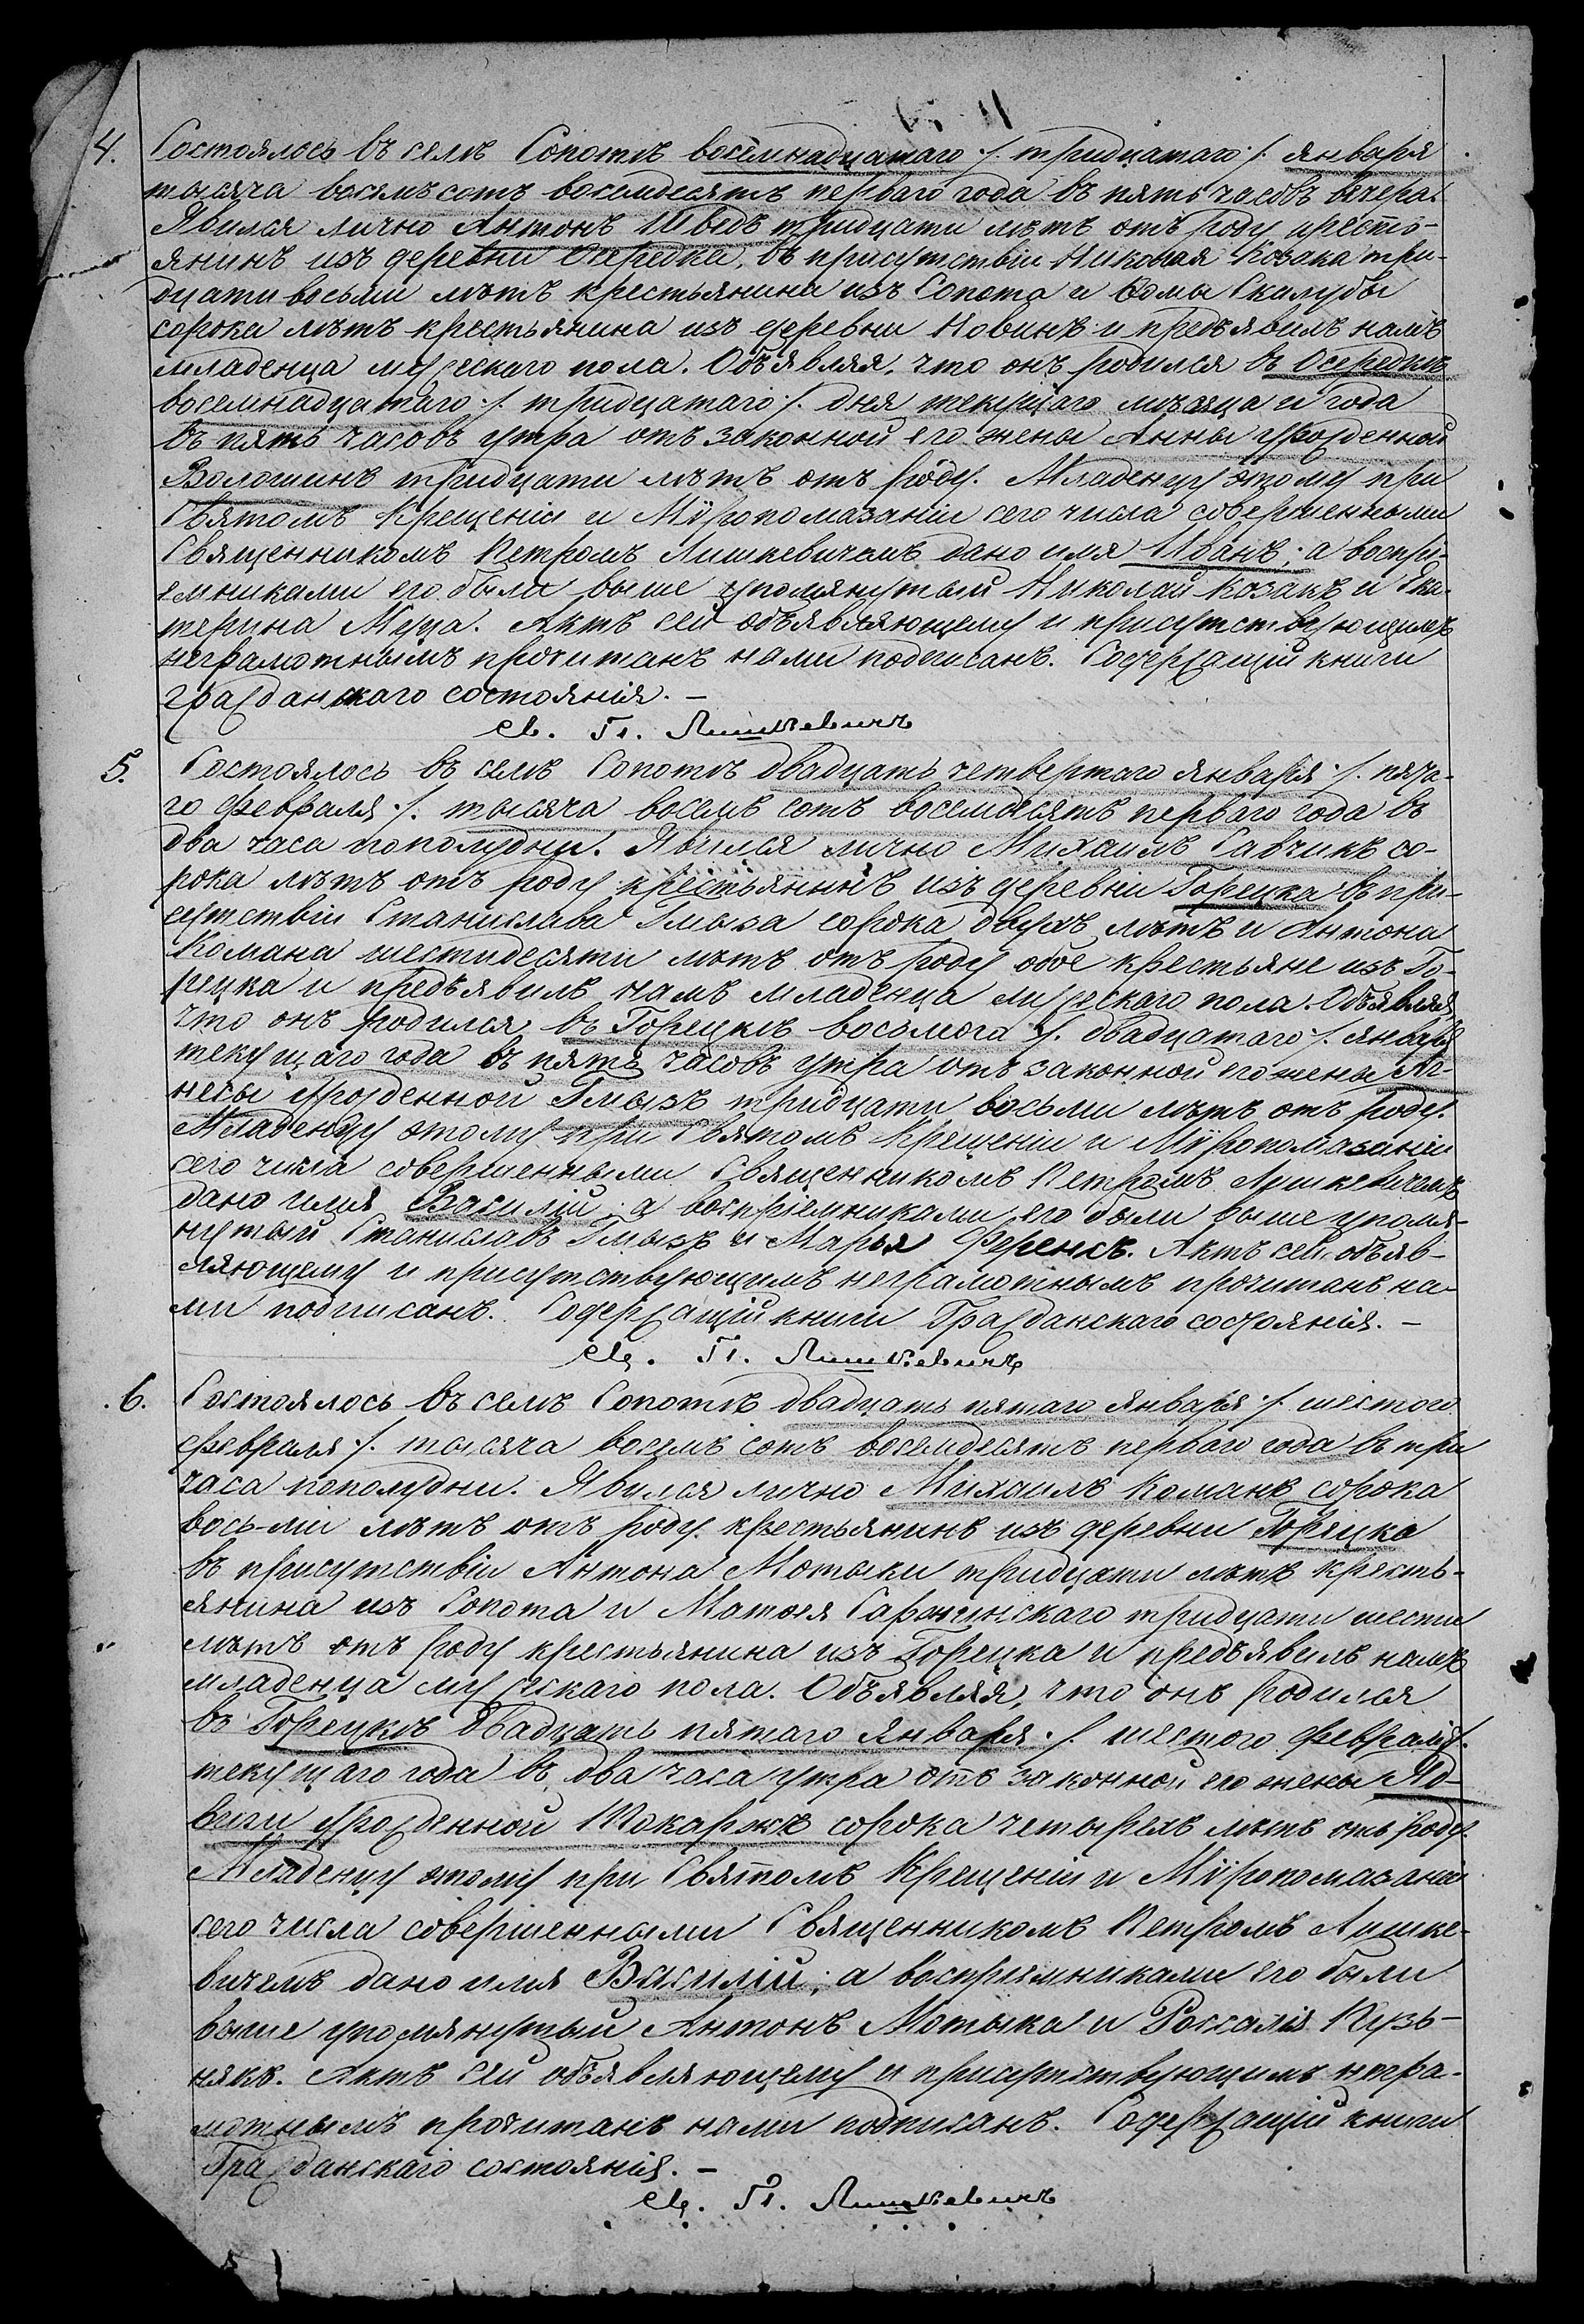 4. Состоялось въ селѣ Сопотѣ восемнадцатаго /. тридцатаго ./. января
тысяча восемьсотъ восемдесятъ перваго года въ пять часовъ вечера.
Явился лично Антонъ Шведъ тридцати лѣтъ отъ роду кресть-
янинъ изъ деревни Осередка, въ присутствіи Николая Козака три-
дцати восьми лѣтъ крестьянина изъ Сопота и Ѳомы Скалубы
сорока лѣтъ крестьянина изъ деревни Новинъ и предъявилъ намъ
младенца мужескаго пола. Объявляя, что онъ родился въ Осередкѣ
восемнадцатаго ./. тридцатаго ./. дня текущаго мѣсяца и года
въ пять часовъ утра отъ законной его жены Анны урожденной
Волошинъ тридцати лѣтъ отъ роду. Младенцу этому при
Святомъ Крещеніи и Мѵропомазаніи сего числа совершенными
Священникомъ Петромъ Лишкевичемъ дано имя Иванъ; а воспрі-
емниками его были выше упомянутый Николай Козакъ и Ека-
терина Муца. Актъ сей объявляющему и присутствующимъ
неграмотнымъ прочитанъ нами подписанъ. Содержащій книги
гражданскаго состоянія. –
Св. П. Лишкевичъ
5. Состоялось въ селѣ Сопотѣ двадцать четвертаго января ./. пята-
го февраля ./. тысяча восемь сотъ восемдесятъ перваго года въ
два часа пополудни. Явился лично Михаилъ Савчикъ со-
рока лѣтъ отъ роду крестьянинъ изъ деревни Горецка въ при-
сутствіи Станислава Гмыза сорока двухъ лѣтъ и Антона
Комана шестидесяти лѣтъ отъ роду обое крестьяне изъ Го-
рецка и предъявилъ намъ младенца мужескаго пола. Объявляя,
что онъ родился въ Горецкѣ восьмого ./. двадцатаго ./. января
текущаго года въ пять часовъ утра отъ законной его жены Аг-
несы урожденной Гмызъ тридцати восьми лѣтъ отъ роду.
Младенцу этому при Святомъ Крещеніи и Мѵропомазаніи
сего числа совершенными Священникомъ Петромъ Лишкевичемъ
дано имя Василій; а воспріемниками его были выше упомя-
нутый Станиславъ Гмызъ и Марья Ференсъ. Актъ сей объяв-
ляющему и присутствующимъ неграмотнымъ прочитанъ на-
ми подписанъ. Содержащій книги Гражданскаго состоянія. –
Св. П. Лишкевичъ
6. Состоялось въ селѣ Сопотѣ двадцать пятаго января ./. шестого
февраля ./. тысяча восемь сотъ восемдесятъ перваго года въ три
часа пополудни. Явился лично Михаилъ Команъ сорока
восьми лѣтъ отъ роду крестьянинъ изъ деревни Горецка
въ присутствіи Антона Мотыки тридцати лѣтъ кресть-
янина изъ Сопота и Матвея тридцати шести
лѣтъ отъ роду крестьянина изъ Горецка и предъявилъ намъ
младенца мужескаго пола. Объявляя, что онъ родился
въ Горецкѣ двадцать пятаго января ./. шестого февраля ./.
текущаго года въ два часа утра отъ законной его жены Яд-
виги урожденной сорока четырехъ лѣтъ отъ роду.
Младенцу этому при Святомъ Крещеніи и Мѵропомазаніи
сего числа совершенными Священникомъ Петромъ Лишке-
вичемъ дано имя Василій; а воспріемниками его были
выше упомянутый Антонъ Мотыка и Розалія Кузь-
някъ. Актъ сей объявляющему и присутствующимъ негра-
мотнымъ прочитанъ нами подписанъ. Содержащій книги
Гражданскаго состоянія. –
Св. П. Лишкевичъ